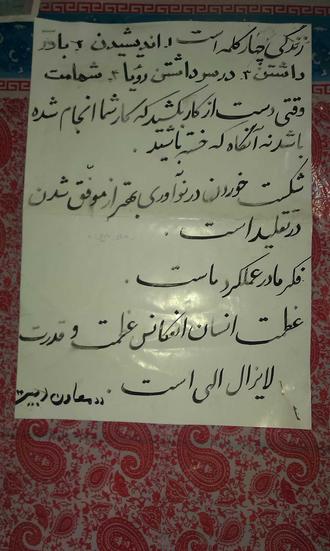 زندگی چهار کلمه است ۱ـ اندیشیدن ۲ـ باور
داشتن ۳ـ در سر داشتن رؤیا ۴ـ شهامت
وقتی دست از کار بکشید که کار شما انجام شده
باشد نه آنگاه که خسته باشید .
شکست خوردن در نوآوری بهتر از موفق شدن
در تقلید است .
فکر ما در عملکرد ماست .
عظمت انسان انعکاس عظمت و قدرت
لایزال الهی است .
معاون